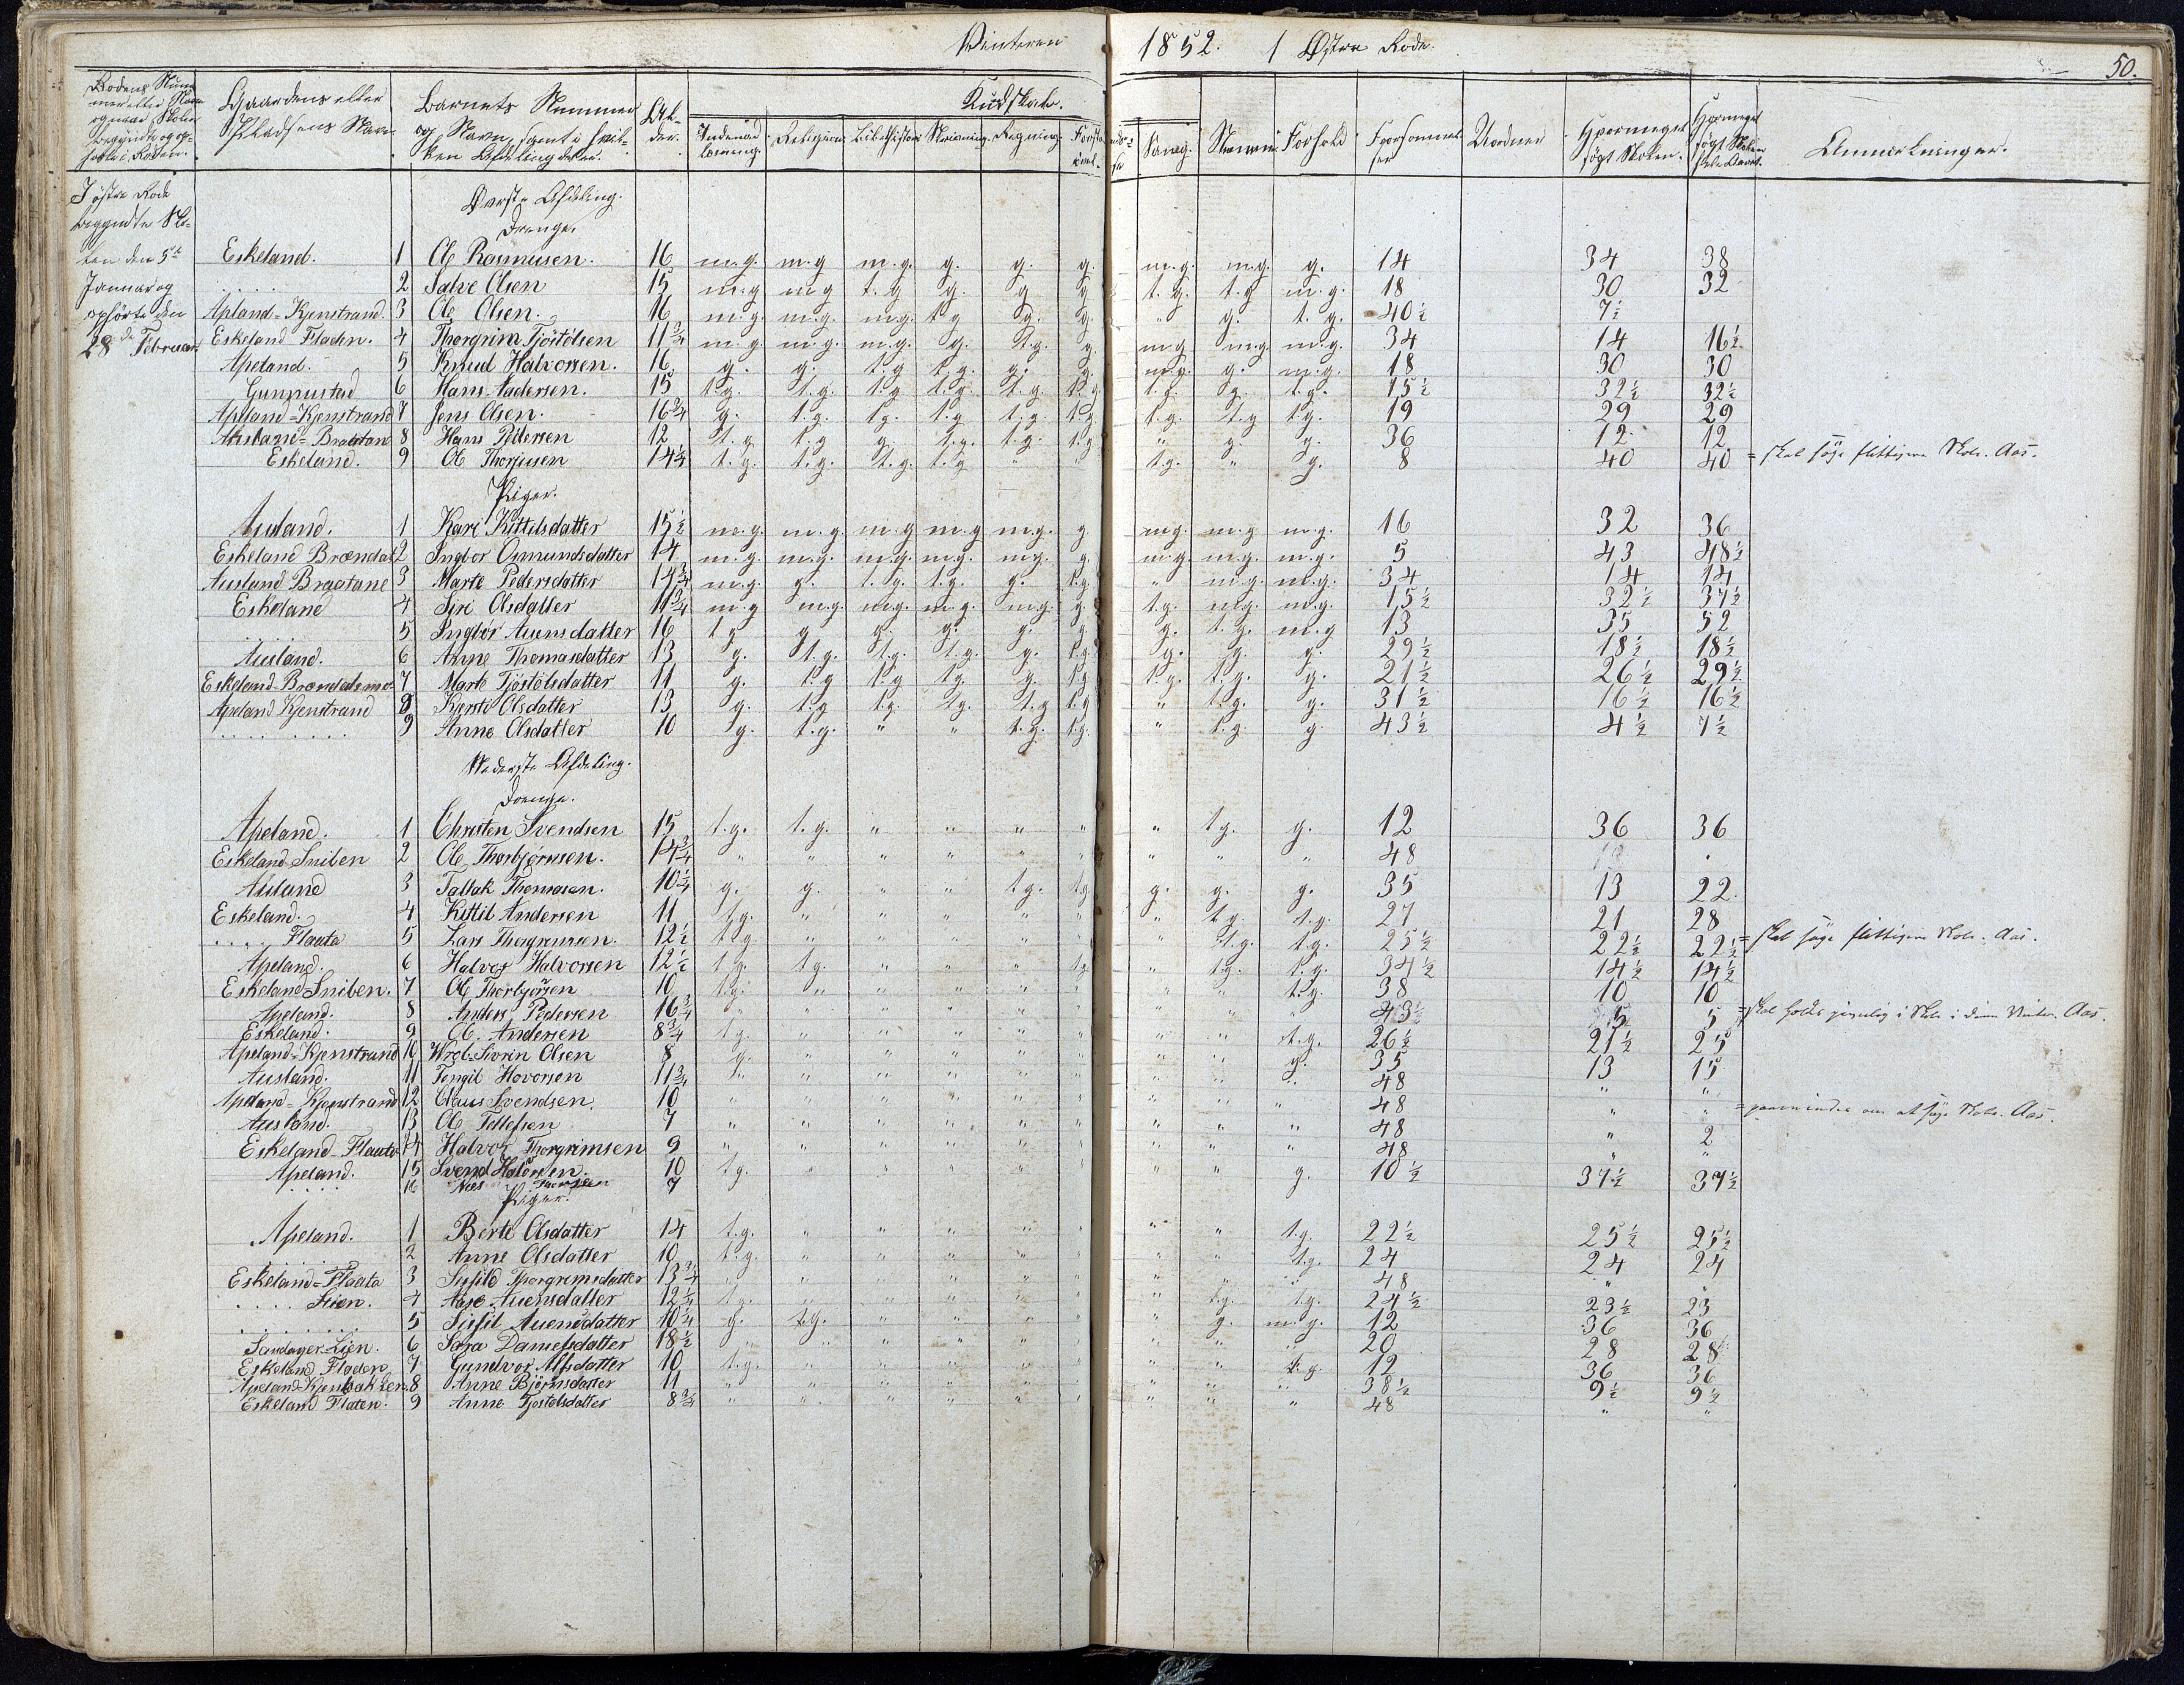 Vinteren 1852. 1 Østre Rode. 50.
Rodens Num- mer eller Navn og naar Skolen begyndte og op- hørte i Roden. Gaardens eller Pladsens Navn Barnets Nummer og Navn, samt i hvil- ken Afdeling det er. Al- der. Kundskab.
Indenad læsning. Religion Bibelhistorie Skrivning. Regning. Sang. Forhold Forsømmel- ser Hvormeget søgt Skolen. Hvormeget søgt Skolen hele Aaret Anmærkninger.
I østre Rode
begyndte Sko-
len den 5te
Januar og
ophørte den
28de Februar
Øverste Afdeling.
Drenge.
Eskeland. 1 Ole Rasmusen. 16 m.g. m.g m.g. g. g. g. m.g. m.g. g. 14 34 38
..... 2 Salve Olsen 15 m.g m.g t.g g. g g t.g. t.g m.g. 18 30 32
Apland=Kjenstrand. 3 Ole Olsen. 16 m.g. m.g. m.g. t.g g. g. " g. t.g. 40½ 7½
Eskeland Fladen. 4 Thorgrim Tjöstölsen 11¾ m.g. m.g. m.g. g. t.g. g. m.g m.g. m.g. 34 14 16½
Apeland. 5 Knud Halvorsen. 16 g. g. t.g t.g. g. g. m.g. g. m.g. 18 30 30
Gunnustad 6 Hans Aadersen. 15 t.g. t.g. t.g t.g. t.g t.g t.g. g. t.g. 15½ 32½ 32½
Apeland=Kjenstrand 7 Jens Olsen. 16¾ g. t.g. t.g. t.g t.g. t.g t.g. t.g t.g. 19 29 29
Ausland=Braatan 8 Hans Pedersen 12 t.g t.g g. t.g. t.g. t.g " g g. 36 12 12
Eskeland. 9 Ole Thorjusen 14¼ t.g. t.g. t.g. t.g " " t.g. " g. 8 40 40 = skal søge flittigere Skole. Aas.
Piger.
Ausland. 1 Kari Kittilsdatter 15½ m.g. m.g. m.g m.g m.g. g. m.g. m.g m.g. 16 32 36
Eskeland Brændal 2 Ingbor Omundsdatter 14 m.g. m.g. m.g. m.g. m.g. g. m.g. m.g. m.g. 5 43 48½
Ausland Braatane 3 Marte Pedersdatter 14¾ m.g. g. t.g. t.g. g. t.g " m.g. m.g. 34 14 14
Eskeland 4 Siri Olsdatter 11¾ m.g m.g. m.g. m.g. m.g. g. t.g. m.g. m.g. 15½ 32½ 37½
..... 5 Ingbör Auensdatter 16 t.g g g. g. g. g. g. t.g. m.g 13 35 52
Ausland. 6 Anne Thomasdatter 13 g. t.g. t.g. t.g. g. t.g. g. g. g. 29½ 18½ 18½
Eskeland=Brændalsmo 7 Marte Tjöstölsdatter 11 g. t.g t.g t.g. g. t.g t.g. t.g. g. 21½ 26½ 29½
Apeland Kjenstrand 8 Kirste Olsdatter 13 g. t.g t.g. t.g. t.g t.g " t.g. g. 31½ 16½ 16½
......... 9 Anne Olsdatter 10 g. t.g. " " t.g. t.g. " t.g. g. 43½ 4½ 7½
Nederste Afdeling.
Drenge.
Apeland. 1 Christen Svendsen 15 t.g. t.g. " " " " " t.g. g. 12 36 36
Eskeland Sniben 2 Ole Thorbjørnsen. 14¾ " " " " " " " " " 48
Ausland 3 Tallak Thomasen. 10¼ g. g. " " t.g. t.g. g. g. g. 35 13 22.
Eskeland. 4 Kittil Andersen 11 t.g. " " " " " " t.g. t.g. 27 21 28
.... Flauta 5 Lars Thorgrimsen. 12½ t.g. " " " " " " t.g. t.g. 25½ 22½ 22½ = skal søge flittigere Skole. Aas.
Apeland. 6 Halvor Halvorsen 12½ t.g. t.g. " " " t.g. " t.g. t.g. 34½ 14½ 14½
Eskeland Sniben. 7 Ole Thorbjörsen 10 t.g. " " " " " " " t.g. 38 10 10
Apeland. 8 Anders Pedersen 16¾ " " " " " " " " " 43½ 5 5 = skal holde i Skole i denne Vinter. Aas.
Eskeland. 9 Ole Andersen 8¾ t.g. " " " " " " " t.g. 26½ 21½ 25
Apeland=Kjenstrand 10 Wrol Sivrin Olsen 8 g. " " " " " " " g. 35 13 15
Ausland. 11 Tengil Hovorsen 11¾ " " " " " " " " " 48 " "
Apeland=Kjenstrand 12 Claus Svendsen. 10 " " " " " " " " " 48 " " = om at søge Skole. Aas.
Ausland. 13 Ole Tellefsen 7 " " " " " " " " " 48 " 2
Eskeland=Flauta 14 Halvor Thorgrimsen 9 " " " " " " " " " 48 " "
Apeland. 15 Svend Halvorsen. 10 t.g. " " " " " " " g. 10½ 37½ 37½
.... 16 7
Piger.
Apeland. 1 Berte Olsdatter 14 t.g. " " " " " " " t.g. 22½ 25½ 25½
..... 2 Anne Olsdatter 10 t.g. " " " " " " " t.g. 24 24 24
Eskeland=Flauta 3 Sigfild Thorgrimsdatter 13¾ " " " " " " " " " 48 " "
.... Lien. 4 Aase Auensdatter 12¼ t.g. " " " " " " t.g. t.g. 24½ 23½ 23
........ 5 Sigfil Auensdatter 10¼ g. t.g. " " " " " g. m.g. 12 36 36
Sandager=Lien. 6 Sara Danielsdatter 18½ " " " " " " " " " 20 28 28
Eskeland Fladen 7 Gundvor Alfsdatter 10 t.g. " " " " " " " t.g. 12 36 36
Apeland=Kjenbakken 8 Anne Björnsdatter 11 " " " " " " " " " 38½ 9½ 9½
Eskeland Flaten. 9 Anne Tjostolsdatter 8¾ " " " " " " " " " 48 " "